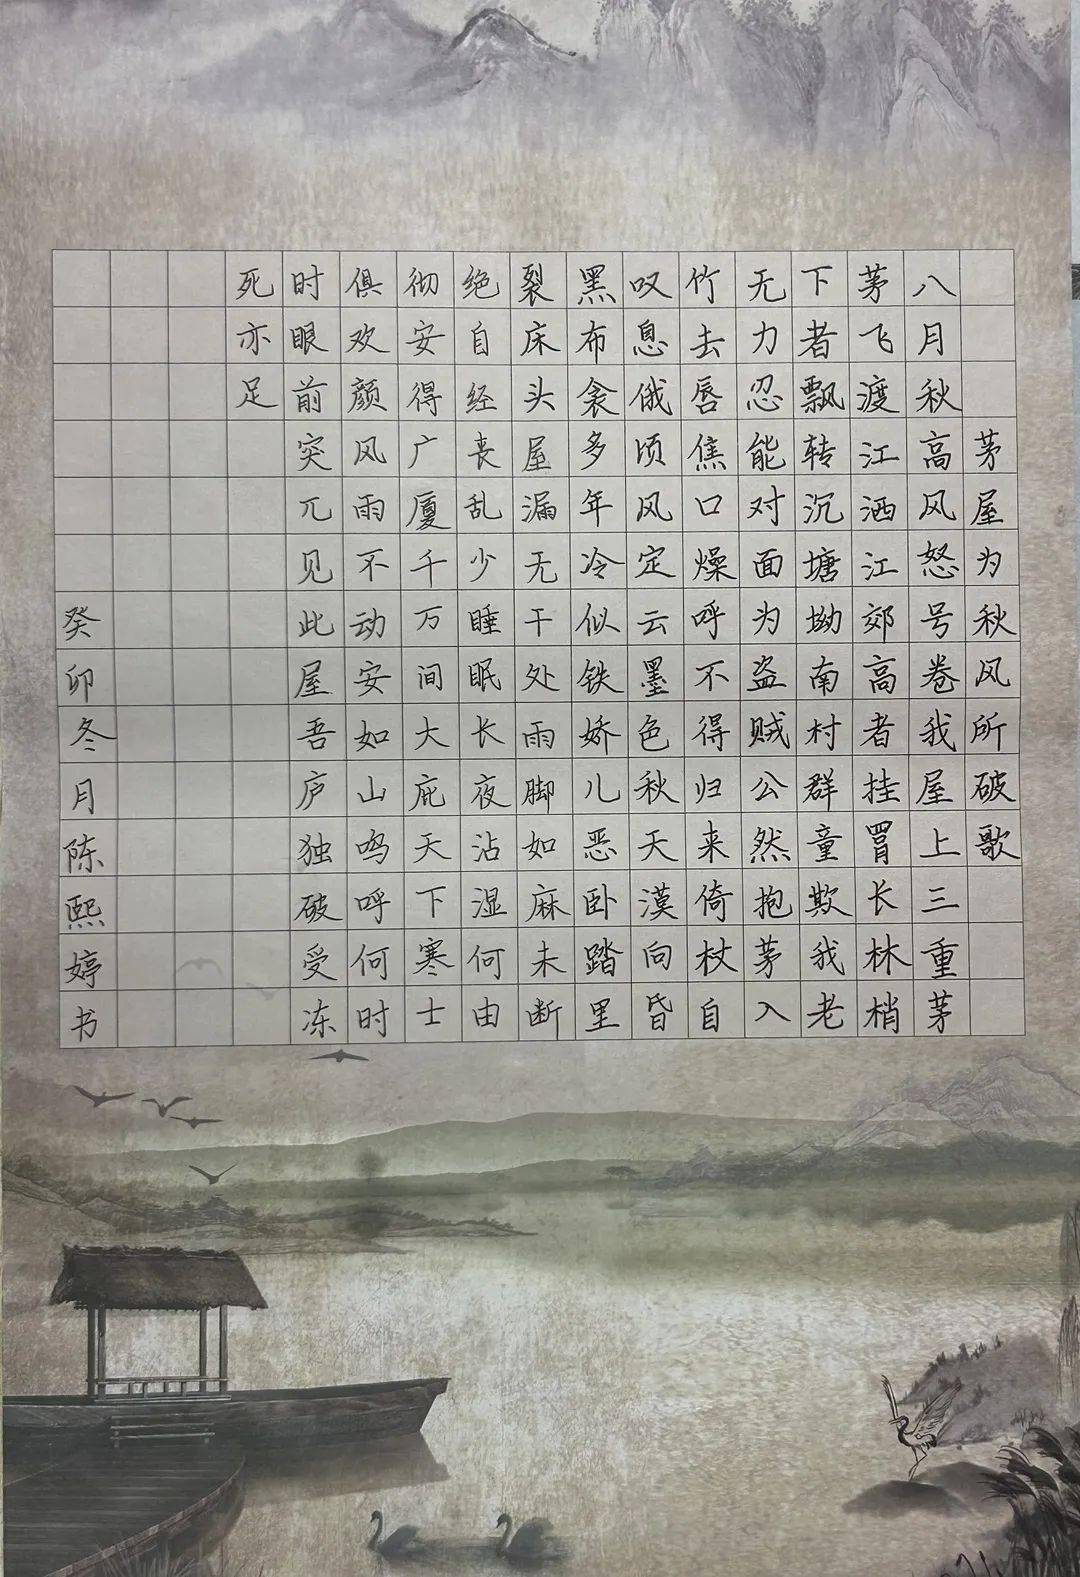 茅屋为秋风所破歌
八月秋高风怒号卷我屋上三重茅
茅飞渡江洒江郊高者挂罥长林梢
下者飘转沉塘坳南村群童欺我老
无力忍能对面为盗贼公然抱茅入
竹去唇焦口燥呼不得归来倚杖自
叹息俄顷风定云墨色秋天漠向昏
黑布衾多年冷似铁娇儿恶卧踏里
裂床头屋漏无干处雨脚如麻未断
绝自经丧乱少睡眠长夜沾湿何由
彻安得广厦千万间大庇天下寒士
俱欢颜风雨不动安如山呜呼何时
时眼前突兀见此屋吾庐独破受冻
死亦足
癸卯冬月陈熙婷书